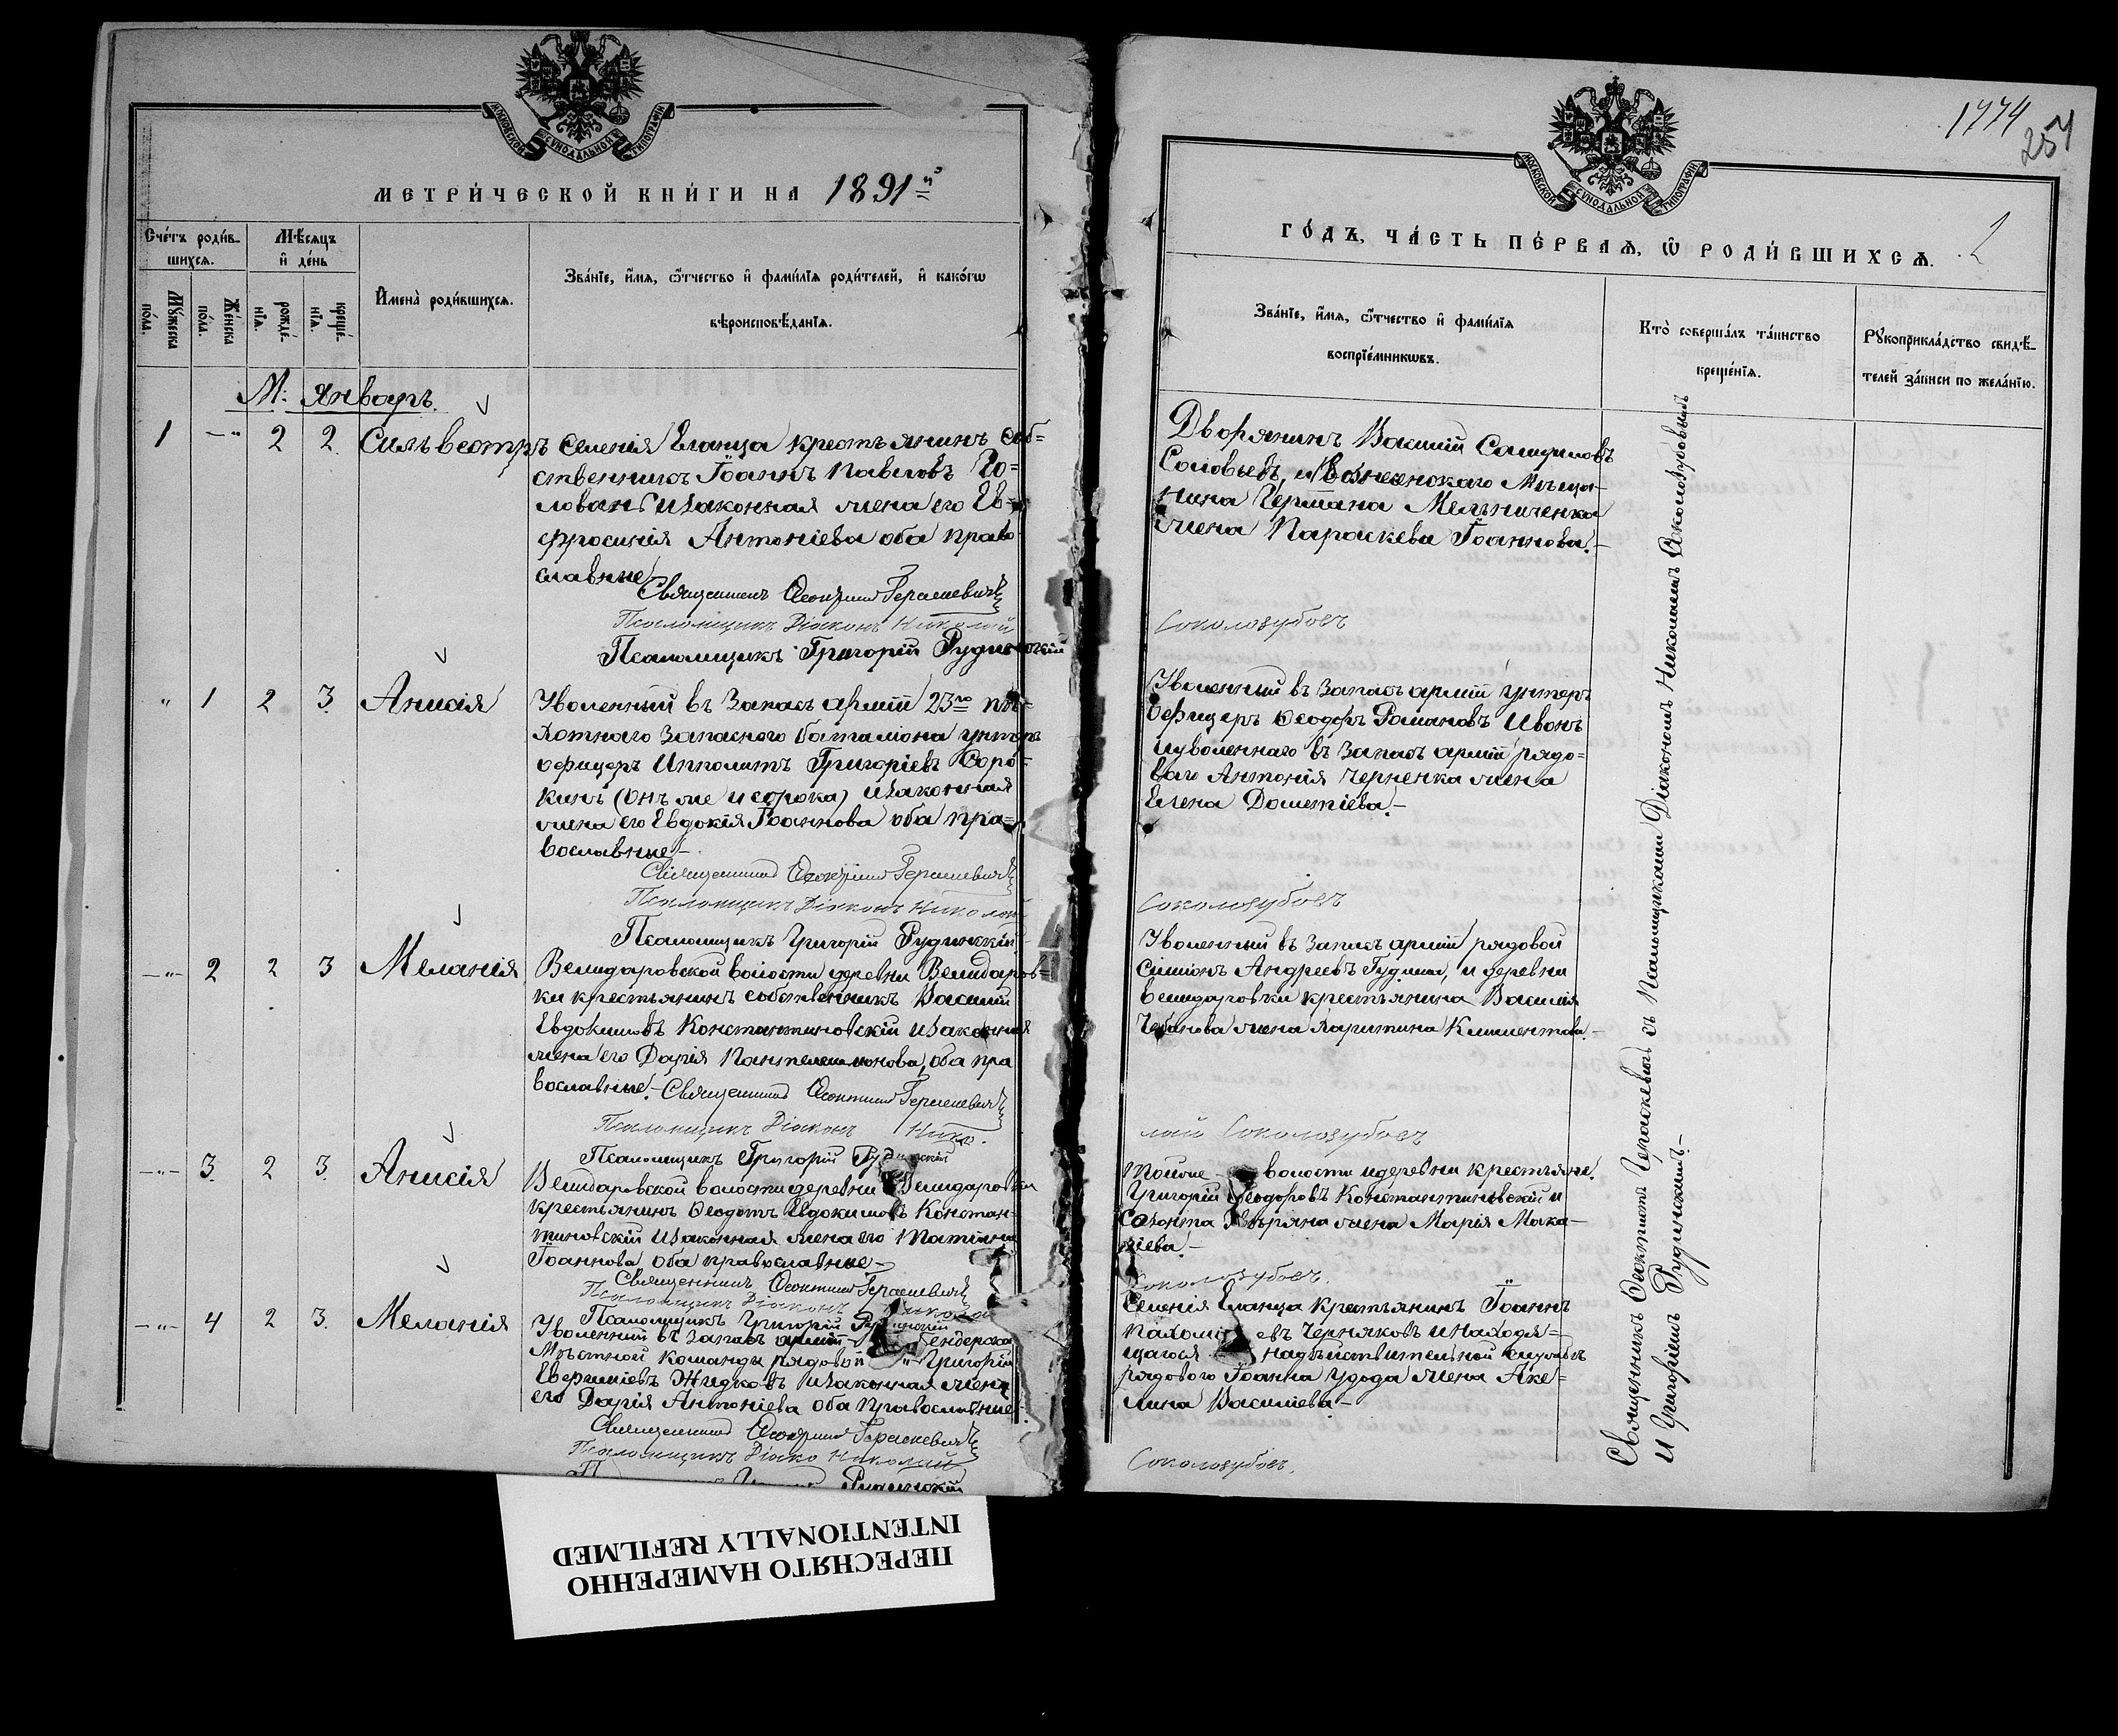 МОСКОВСКОЙ СѴНОДАЛЬНОЙ ТИПОГРАФІИ
МЕТРИ́ЧЕСКОЙ КНИ́ГИ НА 1891й
Сче́тъ роди́в-
шихсѧ.
Мѣ́сѧцъ
и҆ де́нь
Мꙋ́жеска
по́ла.
Же́нска
по́ла.
рожде́-
нїѧ.
креще́-
нїѧ.
И҆мена̀ роди́вшихсѧ.
Зва́нїе, и҆́мѧ, ѻ҆́тчество и҆ фами́лїѧ роди́телей, и҆ како́гѡ
вѣроисповѣ́данїѧ.
М: Январь.
1 -"- 2 2. Сильвестръ
Селенія Еланца крестьянинъ соб=
ственникъ Іоаннъ Павловъ Го=
лован и законная жена его Ев=
фросинія Антоніева оба право
славные
Священникъ Ѳеоктистъ Гераскевичъ
Псаломщикъ Діаконъ Николай
Псаломщикъ Григорій Рудинскій
" 1 2 3. Анисія
Уволенный въ запасъ арміи 23го пѣ=
хотнаго запаснаго баталіона унтеръ
офицеръ Ипполитъ Григоріевъ Соро=
кинъ (онъ же и сорока) и законная
жена его Евдокія Іоаннова оба пра=
вославные-
Священникъ Ѳеоктистъ Гераскевичъ
Псаломщикъ Діаконъ Николай
Псаломщикъ Григорій Рудинскій
-"- 2 2 3 Меланія
Велидаровской волости деревни Велидаров=
ки крестьянинъ собственникъ Василій
Евдокимовъ Константиновскій и законная
жена его Дарія Пантелеимонова, оба пра
вославные.- Священникъ Ѳеоктистъ Гераскевичъ
Псаломщикъ Діаконъ Нико.
Псаломщикъ Григорій Рудинскій
-"- 3. 2 3. Анисія
Велидаровской волости деревни Велидаровки
крестьянинъ Ѳеодотъ Евдокимовъ Констан-
тиновскій и законная жена его Татіана
Іоаннова оба православные-
Священникъ Ѳеоктистъ Гераскевичъ
Псаломщикъ Діаконъ Николай
Псаломщикъ Григорій Рудинскій
-"- 4 2 3. Меланія
Уволенный въ запасъ арміи Бендерской
Мѣстной команды рядовой Григорій
Евфиміевъ Жидковъ и законная жена
его Дарія Антоніева оба православные
Священникъ Ѳеоктистъ Гераскевичъ
Псаломщикъ Діако Николай
Рудинскій
1774
257
2
МОСКОВСКОЙ СѴНОДАЛЬНОЙ ТИПОГРАФІИ
ГО́ДЪ, ЧА́СТЬ ПЕ́РВАѦ, Ѡ҆ РОДИ́ВШИХСѦ.
Зва́нїе, и҆́мѧ, ѻ҆́тчество и҆ фами́лїѧ
воспрїе́мникѡвъ.
Кто̀ соверша́лъ та́инство
креще́нїѧ.
Рꙋкоприкла́дство свидѣ́-
телей за́писи по жела́нїю.
Дворянинъ Василій Самуиловъ
Соловьевъ, и Вознесенскаго Мѣща-
нина Германа Мельниченка
жена Параскева Іоаннова.-
Соколозубовъ
Уволенный въ запасъ арміи унтеръ
офицеръ Ѳеодоръ Романовъ Ивонъ
и уволеннаго въ запасъ арміи рядо=
ваго Антонія Черненка жена
Елена Дометіева.-
Соколозубовъ
Уволенный въ запасъ арміи рядовой
Симіонъ Андреевъ Гудыма, и деревни
Велидаровки крестьянина Василія
Чебанова жена Харитина Климентова.-
лай Соколозубовъ
Тойже волости и деревни крестьяне.
Григорій Ѳеодоровъ Константиновскій и
жена Марія Мака-
ріева.-
Соколозубовъ.
Селенія Еланца крестьянинъ Іоаннъ
Пахоміевъ Черняковъ и находя=
щагося на дѣйствительной службѣ
рядового Іоанна Удода жена Аке=
лина Василіева-
Соколозубовъ.
Священникъ Ѳеоктистъ Гераскевичъ съ Псаломщиками Діакономъ Николаемъ Соколозубовымъ
и Григоріемъ Рудинскимъ.-
ПЕРЕСНЯТО НАМЕРЕННО
INTENTIONALLY REFILMED